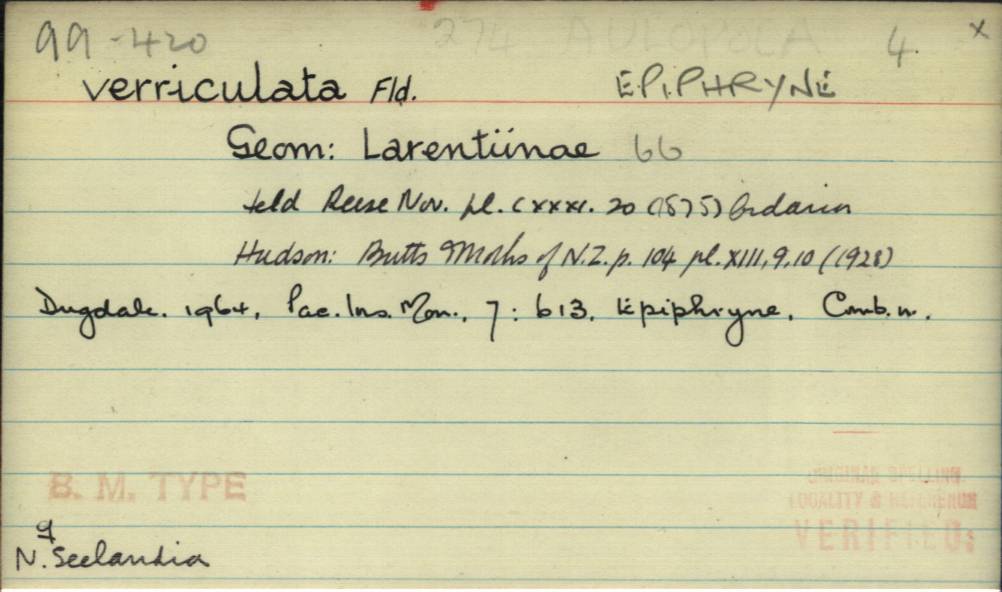 99-420 274 AULOPOLA 4. x
verriculata Fld. EPIPHRYNE
Geom: Larentiinae 66
Feld Reise Nov. pl. CXXXI. 20 (1875) Cidaria
Hudson: Butts & Moths of N.Z. p. 104 pl. XIII, 9, 10 (1928)
Dugdale. 1964, Pac. Ins. Mon., 7: 613. Epiphryne. Comb. n.
B. M. TYPE
ORIGINAL SPELLING
LOCALITY & REFERENCE
VERIFIED:
N. Seelandia